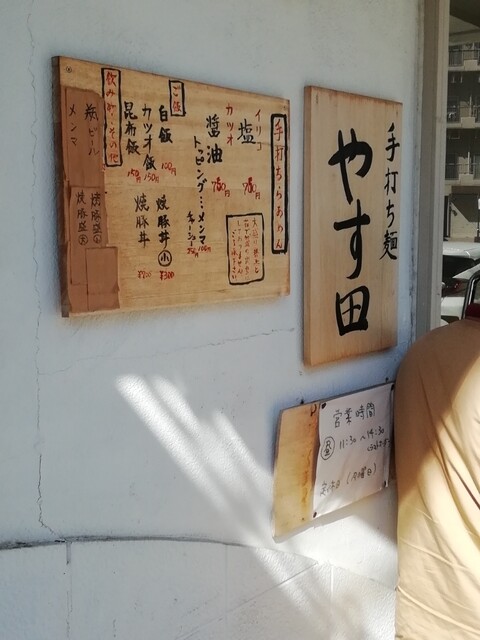 手打ち麺
やす田
手打ちらぁめん
イリコ
塩 750
カツオ
醤油 750
トッピング…メンマ 100円
チャーシュー
ご飯
白飯 100円
カツオ飯 150円
昆布飯 150円
焼豚丼 小 ¥300
焼豚丼
飲み物・その他
瓶ビール
メンマ
焼豚盛 小
焼豚盛 大
営業時間
11:30〜14:30
定休日(月曜日)